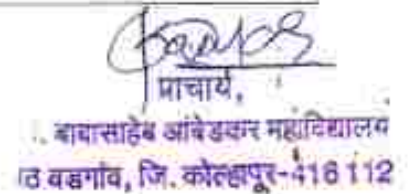 प्राचार्य,
बाबासाहेब आंबेडकर महाविद्यालय
ठ वडगांव, जि. कोल्हापूर-416 112